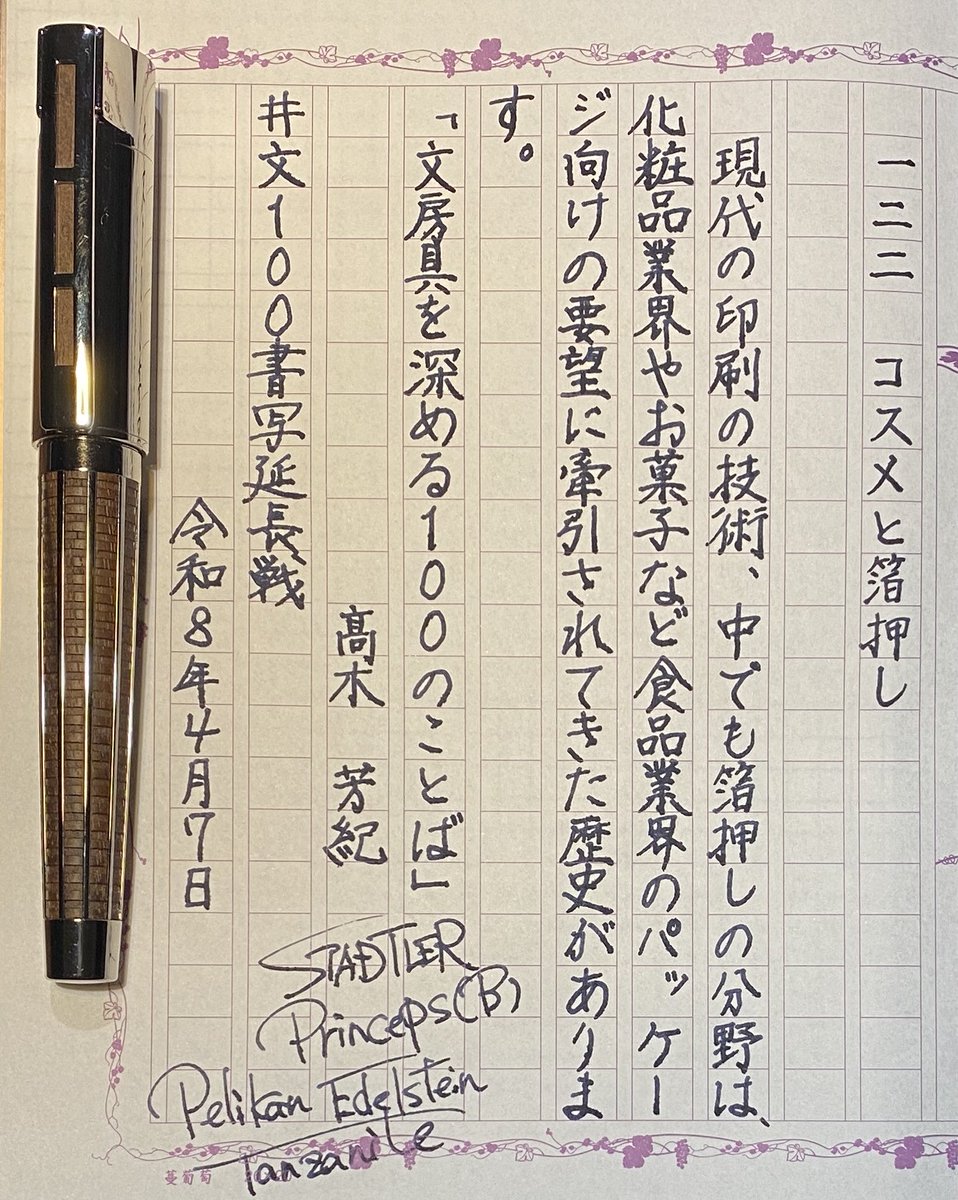 一二二　コスメと箔押し
現代の印刷の技術、中でも箔押しの分野は、
化粧品業界やお菓子など食品業界のパッケー
ジ向けの要望に牽引されてきた歴史がありま
す。
「文房具を深める100のことば」
髙木　芳紀
#文100書写延長戦
令和8年4月7日
STADTLER
Princeps(B)
Pelikan Edelstein
Tanzanite
蔓葡萄